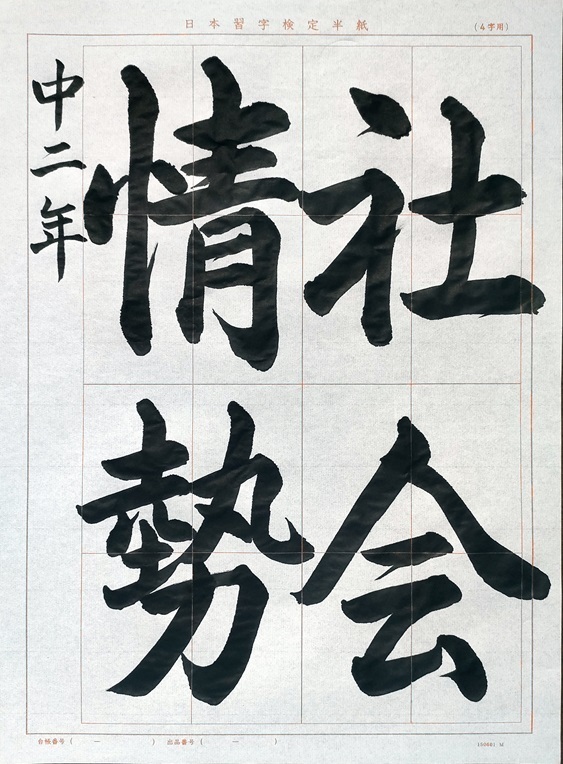 日本習字検定半紙
（4字用）
社会
情勢
中二年
台帳番号（　ー　） 出品番号（　ー　）